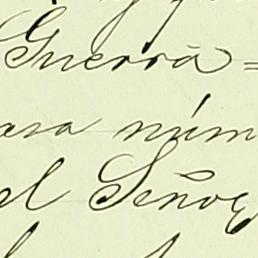 Guerra=
asa núm
el Señor